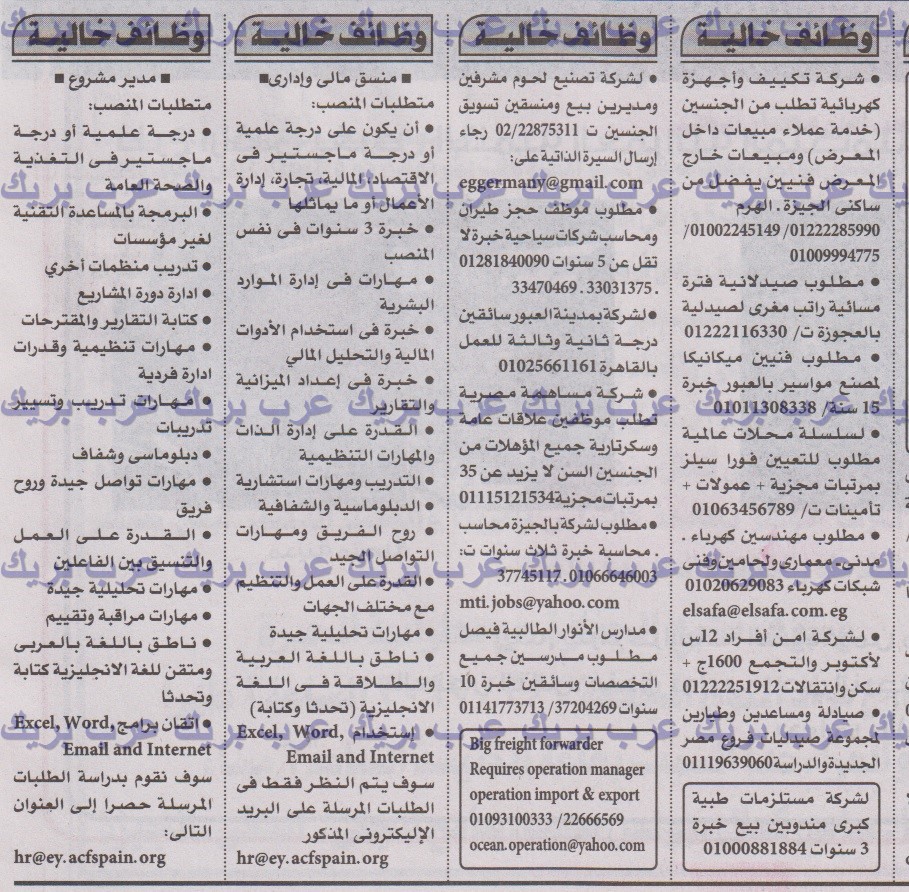 وظائف خالية
• شركة تكييف وأجهزة
كهربائية تطلب من الجنسين
(خدمة عملاء مبيعات داخل
المعرض) ومبيعات خارج
المعرض فنيين يفضل من
ساكنى الجيزة . الهرم
01222285990 /01002245149/
01009994775
• مطلوب صيدلانية فترة
مسائية راتب مغرى لصيدلية
بالعجوزة ت/ 01222116330
• مطلوب فنيين ميكانيكا
لمصنع مواسير بالعبور خبرة
15 سنة/ 01011308338
• لسلسلة محلات عالمية
مطلوب للتعيين فورا سيلز
بمرتبات مجزية + عمولات +
تأمينات ت/ 01063456789
• مطلوب مهندسين كهرباء .
مدنى . معمارى ولحامين وفنى
شبكات كهرباء 01020629083
elsafa@elsafa.com.eg
• لشركة امن أفراد 12س
لأكتوبر والتجمع 1600ج +
سكن وانتقالات 01222251912
• صيادلة ومساعدين وطيارين
لمجموعة صيدليات فروع مصر
الجديدة والدراسة 01119639060
لشركة مستلزمات طبية
كبرى مندوبين بيع خبرة
3 سنوات 01000881884
وظائف خالية
• لشركة تصنيع لحوم مشرفين
ومديرين بيع ومنسقين تسويق
الجنسين ت 02/22875311 رجاء
إرسال السيرة الذاتية على:
eggermany@gmail.com
• مطلوب موظف حجز طيران
ومحاسب شركات سياحية خبرة لا
تقل عن 5 سنوات 01281840090
. 33031375 . 33470469
• لشركة بمدينة العبور سائقين
درجة ثانية وثالثة للعمل
بالقاهرة 01025661161
• شركة مساهمة مصرية
تطلب موظفين علاقات عامة
وسكرتارية جميع المؤهلات من
الجنسين السن لا يزيد عن 35
بمرتبات مجزية 01115121534
• مطلوب لشركة بالجيزة محاسب
. محاسبة خبرة ثلاث سنوات ت:
01066646003 . 37745117
mti.jobs@yahoo.com
• مدارس الأنوار الطالبية فيصل
مطلوب مدرسين جميع
التخصصات وسائقين خبرة 10
سنوات 37204269/ 01141773713
Big freight forwarder
Requires operation manager
operation import & export
01093100333 /22666569
ocean.operation@yahoo.com
وظائف خالية
■ منسق مالى وإدارى■
متطلبات المنصب:
• أن يكون على درجة علمية
أو درجة ماجستير فى
الاقتصاد، المالية، تجارة، إدارة
الأعمال أو ما يماثلها
• خبرة 3 سنوات فى نفس
المنصب
• مهارات فى إدارة الموارد
البشرية
• خبرة فى استخدام الأدوات
المالية والتحليل المالي
• خبرة فى إعداد الميزانية
والتقارير
• القدرة على إدارة الذات
والمهارات التنظيمية
• التدريب ومهارات استشارية
• الدبلوماسية والشفافية
• روح الفريق ومهارات
التواصل الجيد
• القدرة على العمل والتنظيم
مع مختلف الجهات
• مهارات تحليلية جيدة
• ناطق باللغة العربية
والطلاقة فى اللغة
الانجليزية (تحدثا وكتابة)
• إستخدام Excel, Word,
Email and Internet
سوف يتم النظر فقط فى
الطلبات المرسلة على البريد
الإليكترونى المذكور
hr@ey.acfspain.org
وظائف خالية
■ مدير مشروع ■
متطلبات المنصب:
• درجة علمية أو درجة
ماجستير فى التغذية
والصحة العامة
• البرمجة بالمساعدة التقنية
لغير مؤسسات
• تدريب منظمات أخري
• ادارة دورة المشاريع
• كتابة التقارير والمقترحات
• مهارات تنظيمية وقدرات
ادارة فردية
• مهارات تدريب وتسيير
تدريبات
• دبلوماسى وشفاف
• مهارات تواصل جيدة وروح
فريق
• القدرة على العمل
والتنسيق بين الفاعلين
• مهارات تحليلية جيدة
• مهارات مراقبة وتقييم
• ناطق باللغة بالعربى
ومتقن للغة الانجليزية كتابة
وتحدثا
• اتقان برامج Excel, Word,
Email and Internet
سوف نقوم بدراسة الطلبات
المرسلة حصرا إلى العنوان
التالى:
hr@ey.acfspain.org
عرب بريك عرب بريك عرب بريك عرب بريك